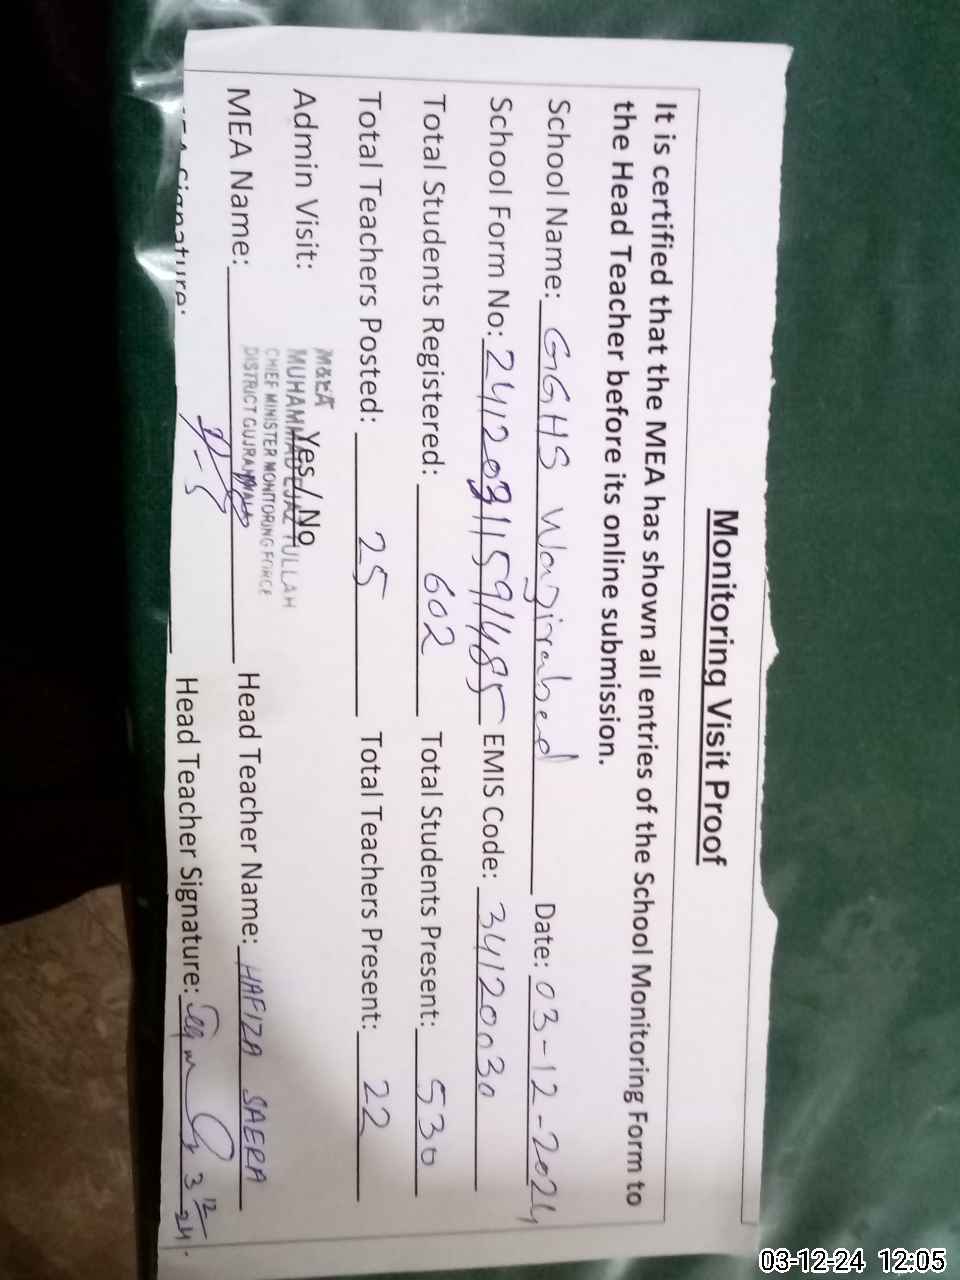 Monitoring Visit Proof
It is certified that the MEA has shown all entries of the School Monitoring Form to
the Head Teacher before its online submission.
School Name: GGHS Wazirabad Date: 03-12-2024
School Form No: EMIS Code: 34120030
Total Students Registered: 602 Total Students Present: 530
Total Teachers Posted: 25 Total Teachers Present: 22
Admin Visit: Yes / No
M&EA
MUHAMMAD EJAZ TULLAH
CHIEF MINISTER MONITORING FORCE
DISTRICT GUJRANWALA
MEA Name: Head Teacher Name: HAFIZA SAERA
Signature: Head Teacher Signature: 3 12 24
03-12-24 12:05